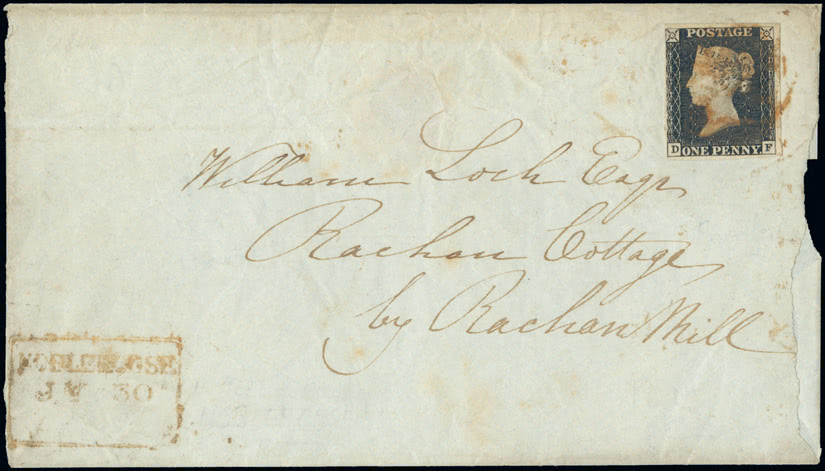 POSTAGE
D ONE PENNY F
William Loch Esqr
Rachan Cottage
by Rachan Mill
NOBLEHOUSE
30